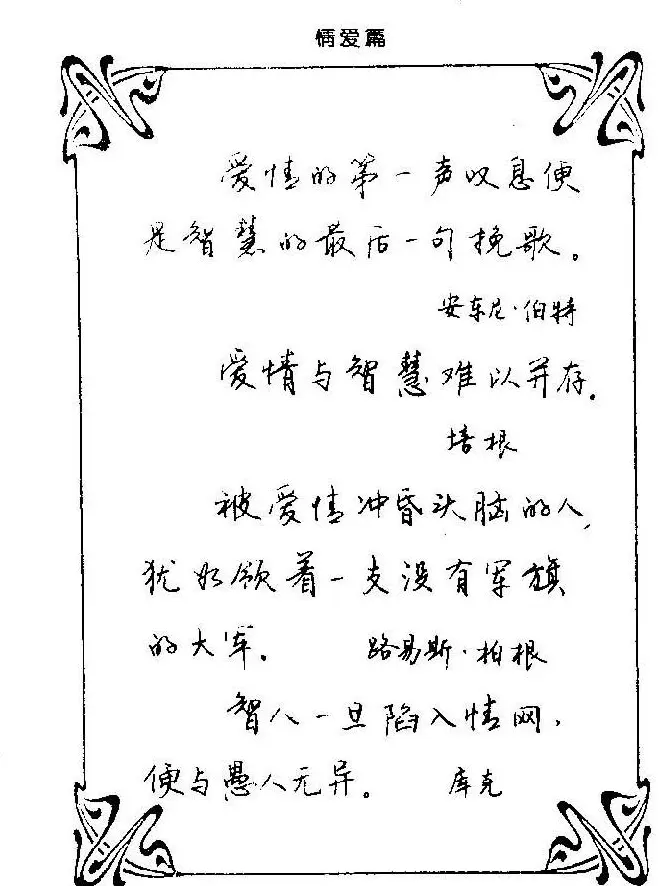 情爱篇
爱情的第一声叹息便
是智慧的最后一句挽歌。
安东尼·伯特
爱情与智慧难以并存.
培根
被爱情冲昏头脑的人,
犹如领着一支没有军旗
的大军. 路易斯·柏根
智人一旦陷入情网,
便与愚人无异。 库克